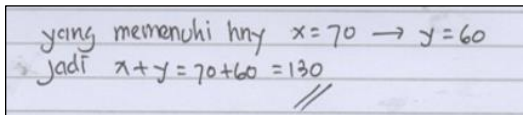 yang memenuhi hny x = 70 → y = 60
jadi x + y = 70 + 60 = 130